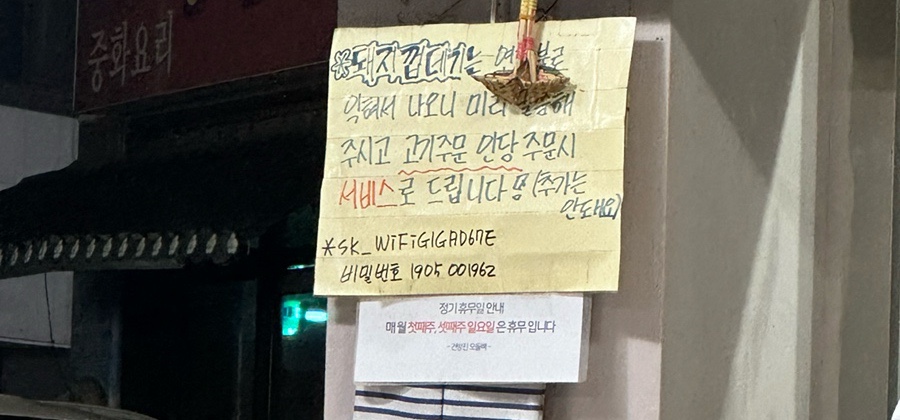 중화요리
※돼지껍데기는
익혀서 나오니 미리
주시고 고기주문 인당 주문시
서비스로 드립니다 (추가는
안돼요)
*SK_WiFiGIGAD67E
비밀번호 1905 001962
정기 휴무일 안내
매월 첫째주, 셋째주 일요일은 휴무입니다